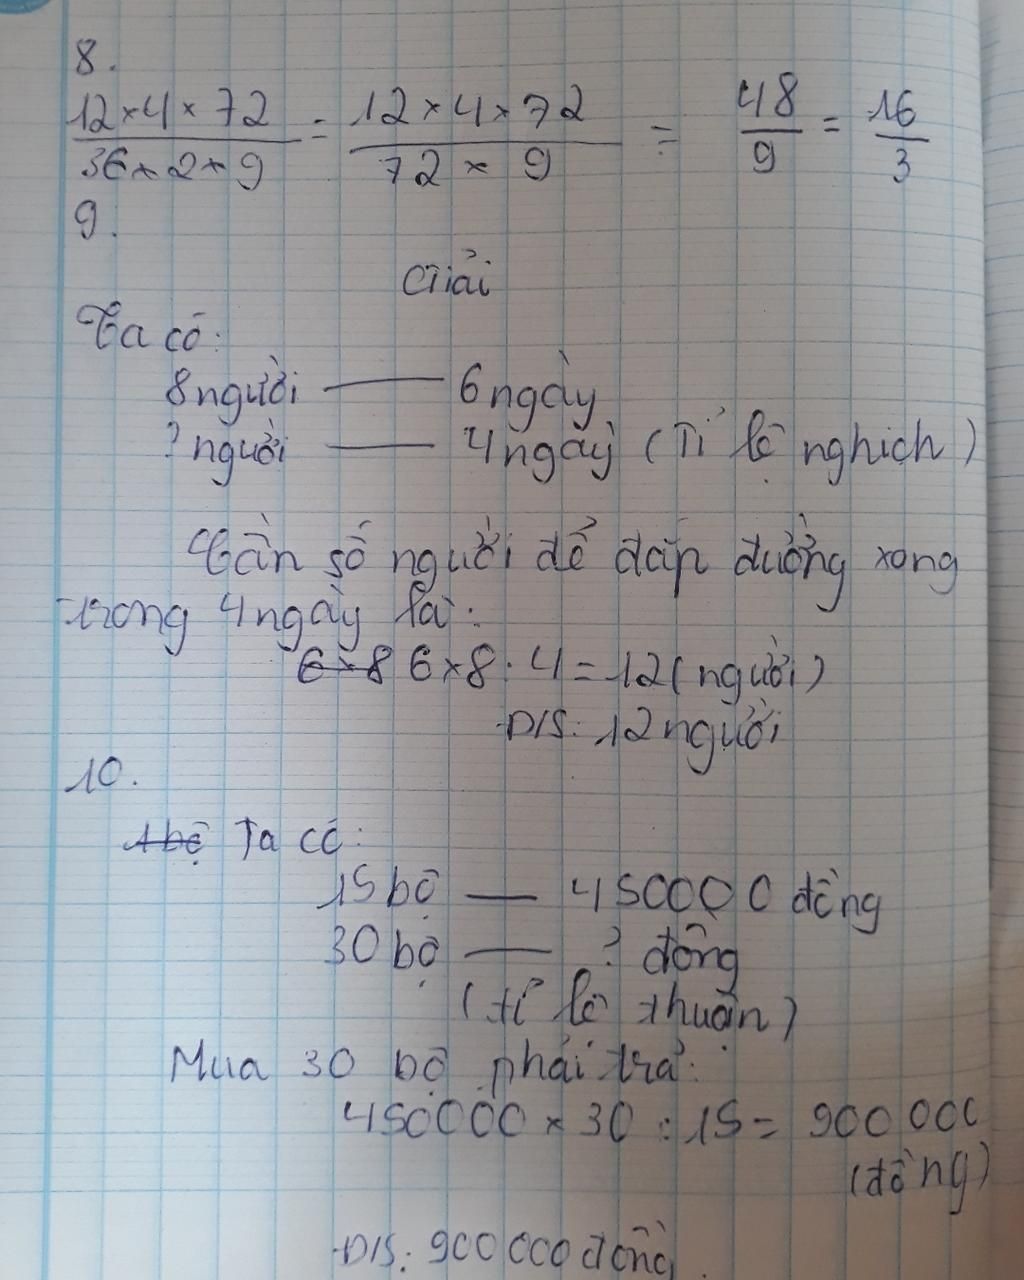 8.
12×4×72 / 36×2×9 = 12×4×72 / 72×9 = 48/9 = 16/3
9.
Giải
Ta có:
8 người — 6 ngày
? người — 4 ngày (Tỉ lệ nghịch)
Cần số người để đắp đường xong
trong 4 ngày là:
6×8 6×8 : 4 = 12 (người)
Đ/S: 12 người
10.
1 bộ Ta có:
15 bộ — 450000 đồng
30 bộ — ? đồng
(tỉ lệ thuận)
Mua 30 bộ phải trả:
450000 × 30 : 15 = 900 000
(đồng)
Đ/S: 900 000 đồng.